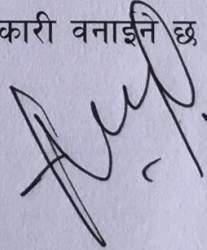 कारी वनाईने छ